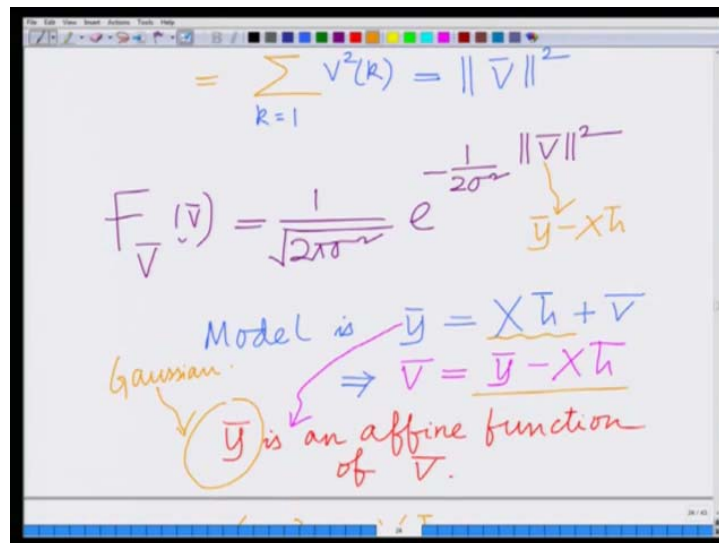 File Edit View Insert Actions Tools Help
= ∑ V²(k) = ‖ V̄ ‖²
k=1
F_V̄ (v̄) = 1/√(2πσ²) e^(-1/(2σ²) ‖V̄‖²)
ȳ - X h̄
Model is ȳ = X h̄ + V̄
Gaussian. ⇒ V̄ = ȳ - X h̄
ȳ is an affine function
of V̄.